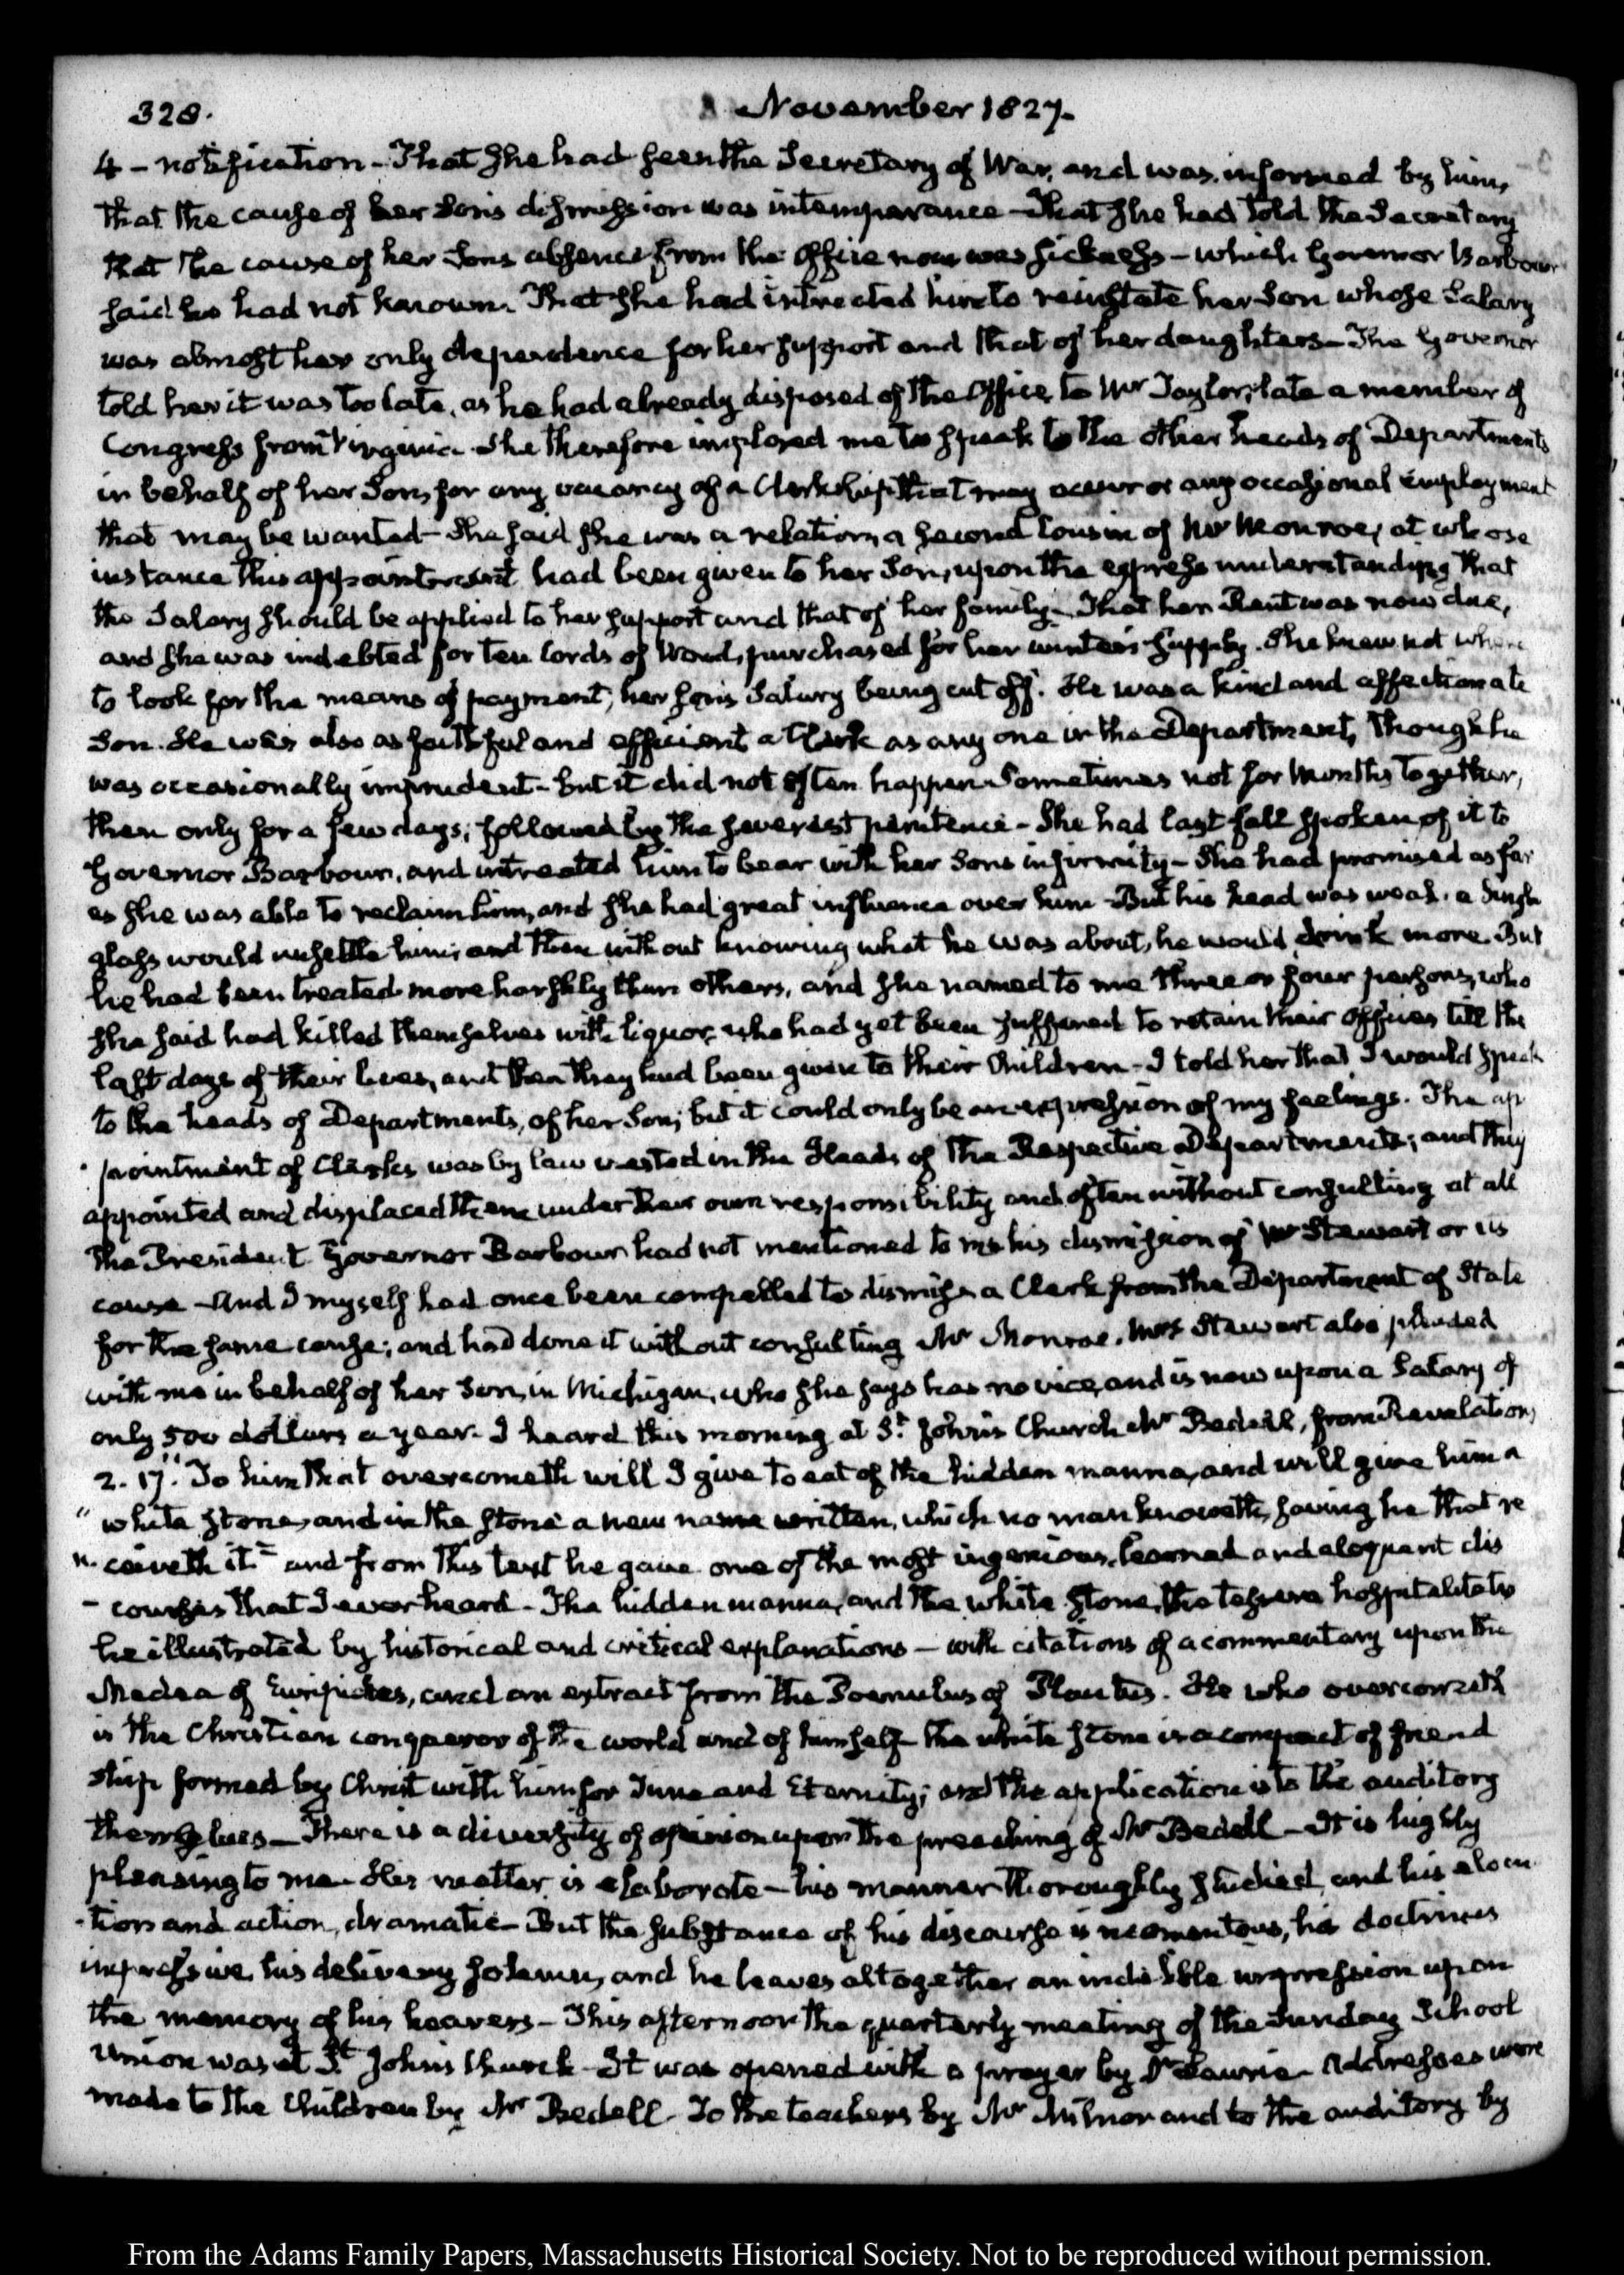 328.
November 1827.
4 - notification - That she had seen the Secretary of War, and was informed by him,
that the cause of her Son's dismission was intemperance - That she had told the Secretary
that the cause of her Sons absence from the Office now was sickness - which Governor Barbour
said he had not known. That she had intreated him to reinstate her Son whose Salary
was almost her only dependence for her support and that of her daughters - The Governor
told her it was too late, as he had already disposed of the Office to Mr Taylor, late a member of
Congress from Virginia. She therefore implored me to speak to the other heads of Departments
in behalf of her Son, for any vacancy of a Clerkship that may occur or any occasional employment
that may be wanted - She said she was a relation, a second Cousin of Mr Monroe, at whose
instance this appointment had been given to her Son, upon the express understanding that
the Salary should be applied to her support and that of her family - That her Rent was now due,
and she was indebted for ten Cords of Wood, purchased for her winter's supply. She knew not where
to look for the means of payment, her son's Salary being cut off. He was a kind and affectionate
Son. He was also as faithful and efficient a Clerk as any one in the Department, though he
was occasionally imprudent - but it did not often happen - Sometimes not for Months together,
then only for a few days; followed by the severest penitence - She had last fall spoken of it to
Governor Barbour, and intreated him to bear with her Sons infirmity - She had promised as far
as she was able to reclaim him, and she had great influence over him - But his head was weak. a Single
glass would unsettle him; and then without knowing what he was about, he would drink more. But
he had been treated more harshly than others, and she named to me three or four persons, who
she said had killed themselves with liquor, who had yet been suffered to retain their Offices till the
last days of their lives, and then they had been given to their Children - I told her that I would speak
to the heads of Departments, of her Son; but it could only be an expression of my feelings. The ap
pointment of Clerks was by law vested in the Heads of the Respective Departments; and they
appointed and displaced them under their own responsibility and often without consulting at all
the President. Governor Barbour had not mentioned to me his dismission of Mr Stewart or its
cause - And I myself had once been compelled to dismiss a Clerk from the Department of State
for the same cause; and had done it without consulting Mr Monroe. Mrs Stewart also pleaded
with me in behalf of her Son, in Michigan, who she says has no vice, and is now upon a Salary of
only 500 dollars a year. I heard this morning at St. John's Church Mr Bedell, from Revelation,
2. 17. "To him that overcometh will I give to eat of the hidden manna, and will give him a
" white stone, and in the stone a new name written, which no man knoweth, saving he that re
" ceiveth it" and from this text he gave one of the most ingenious, learned and eloquent dis
- courses that I ever heard - The hidden manna, and the white stone, the tessera hospitalitatis
he illustrated by historical and critical explanations - with citations of a commentary upon the
Medea of Euripides, and an extract from the Poenulus of Plautus. He who overcometh
is the Christian conqueror of the world and of himself - the white stone is a compact of friend
ship formed by Christ with him for Time and Eternity; and the application is to the auditory
themselves - There is a diversity of opinion upon the preaching of Mr Bedell - It is highly
pleasing to me - His matter is elaborate - his manner thoroughly studied, and his elocu
- tion and action, dramatic - But the substance of his discourse is momentous, his doctrines
impressive, his delivery solemn, and he leaves altogether an indelible impression upon
the memory of his hearers - This afternoon the quarterly meeting of the Sunday School
Union was at St. John's Church - It was opened with a prayer by Dr Laurie - Addresses were
made to the Children by Mr Bedell - To the teachers by Mr Milnor and to the auditory by
From the Adams Family Papers, Massachusetts Historical Society. Not to be reproduced without permission.